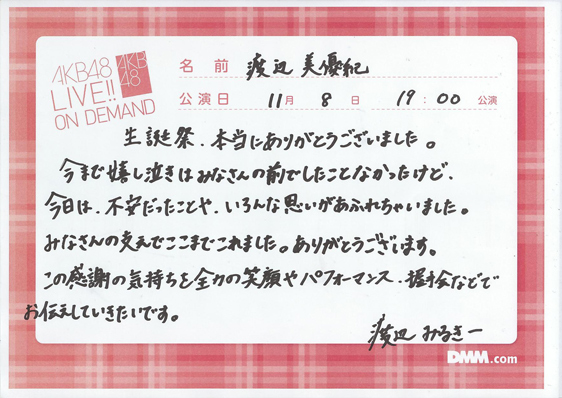 AKB48
LIVE!!
ON DEMAND
AKB
48
名前 渡辺美優紀
公演日 11月 8日 19:00 公演
生誕祭、本当にありがとうございました。
今まで嬉し泣きはみなさんの前でしたことなかったけど、
今日は、不安だったことや、いろんな思いがあふれちゃいました。
みなさんの支えでここまでこれました。ありがとうございます。
この感謝の気持ちを全力の笑顔やパフォーマンス、握手会などで
お伝えしていきたいです。
渡辺みるきー
DMM.com